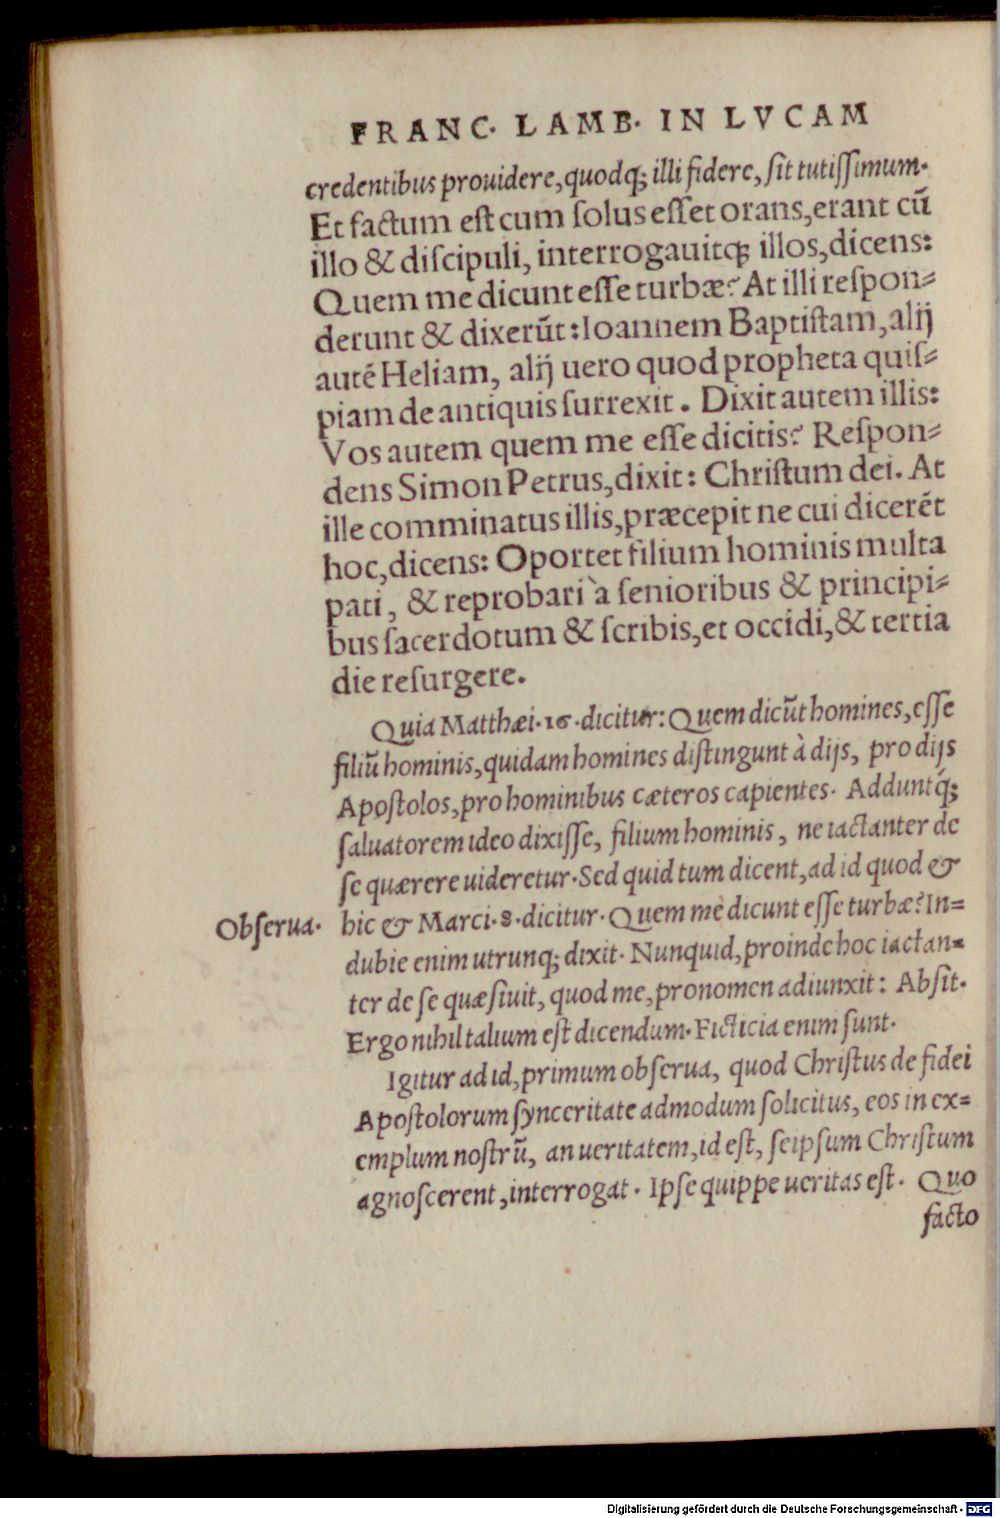 FRANC. LAMB. IN LVCAM
credentibus prouidere, quodq; illi fidere, sit tutissimum.
Et factum est cum solus esset orans, erant cū
illo & discipuli, interrogauitq; illos, dicens:
Quem me dicunt esse turbæ? At illi respon=
derunt & dixerūt: Ioannem Baptistam, alij
autē Heliam, alij uero quod propheta quis=
piam de antiquis surrexit. Dixit autem illis:
Vos autem quem me esse dicitis? Respon=
dens Simon Petrus, dixit: Christum dei. At
ille comminatus illis, præcepit ne cui dicerēt
hoc, dicens: Oportet filium hominis multa
pati, & reprobari à senioribus & principi=
bus sacerdotum & scribis, et occidi, & tertia
die resurgere.
Quia Matthæi. 16. dicitur: Quem dicūt homines, esse
filiū hominis, quidam homines distingunt à dijs, pro dijs
Apostolos, pro hominibus cæteros capientes. Adduntq́;
saluatorem ideo dixisse, filium hominis, ne iactanter de
se quærere uideretur. Sed quid tum dicent, ad id quod &
Obserua.
hic & Marci. 8. dicitur. Quem me dicunt esse turbæ? In=
dubie enim utrunq; dixit. Nunquid, proinde hoc iactan=
ter de se quæsiuit, quod me, pronomen adiunxit: Absit.
Ergo nihil talium est dicendum. Ficticia enim sunt.
Igitur ad id, primum obserua, quod Christus de fidei
Apostolorum synceritate admodum solicitus, eos in ex=
emplum nostrū, an ueritatem, id est, seipsum Christum
agnoscerent, interrogat. Ipse quippe ueritas est. Quo
facto
Digitalisierung gefördert durch die Deutsche Forschungsgemeinschaft - DFG